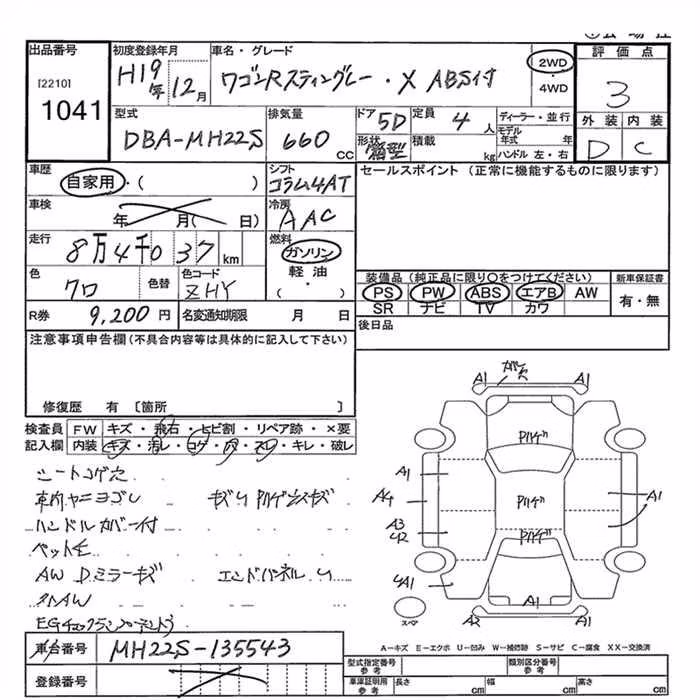 出品番号
[2210]
1041
初度登録年月
H19年 12月
車名・グレード
ワゴンRスティングレー・X ABS付
2WD
・
4WD
評価点
3
外装 内装
D C
型式
DBA-MH22S
排気量
660 CC
ドア 5D
形状 箱型
定員 4 人
積載 kg
ディーラー・並行
モデル年式 年
ハンドル 左・右
車歴
自家用・( )
シフト
コラム4AT
車検
年 月( 日)
冷房
AAC
走行
8万4千037km
燃料
ガソリン
軽油
(・)
色
クロ
色替
色コード
ZHY
R券 9,200円
名変通知期限 月 日
セールスポイント(正常に機能するものに限ります)
装備品(純正品に限り○をつけてください)
PS PW ABS エアB AW
SR ナビ TV カワ
新車保証書
有・無
後日品
注意事項申告欄(不具合内容等は具体的に記入して下さい)
修復歴 有 〔箇所 〕
検査員 FW キズ・飛石・ヒビ割・リペア跡・×要
記入欄 内装 キズ・汚レ・コゲ・穴・スレ・キレ・破レ
シートコゲ穴
車内ヤニヨゴレ
ハンドルカバー付
ペット毛
AW Dミラーキズ エンドパネルU
EGチェックランプ
A1 A1
Pハゲ
A1
A4
Pハゲ
A1
A3
42
Pハゲ
4A1
A1
スペア
A2 A1
A-キズ E-エクボ U-凹み W-補修跡 S-サビ C-腐食 XX-交換済
車台番号 MH22S-135543
登録番号
型式指定番号 参考
類別区分番号 参考
車庫証明用 参考
長さ cm 幅 cm 高さ cm